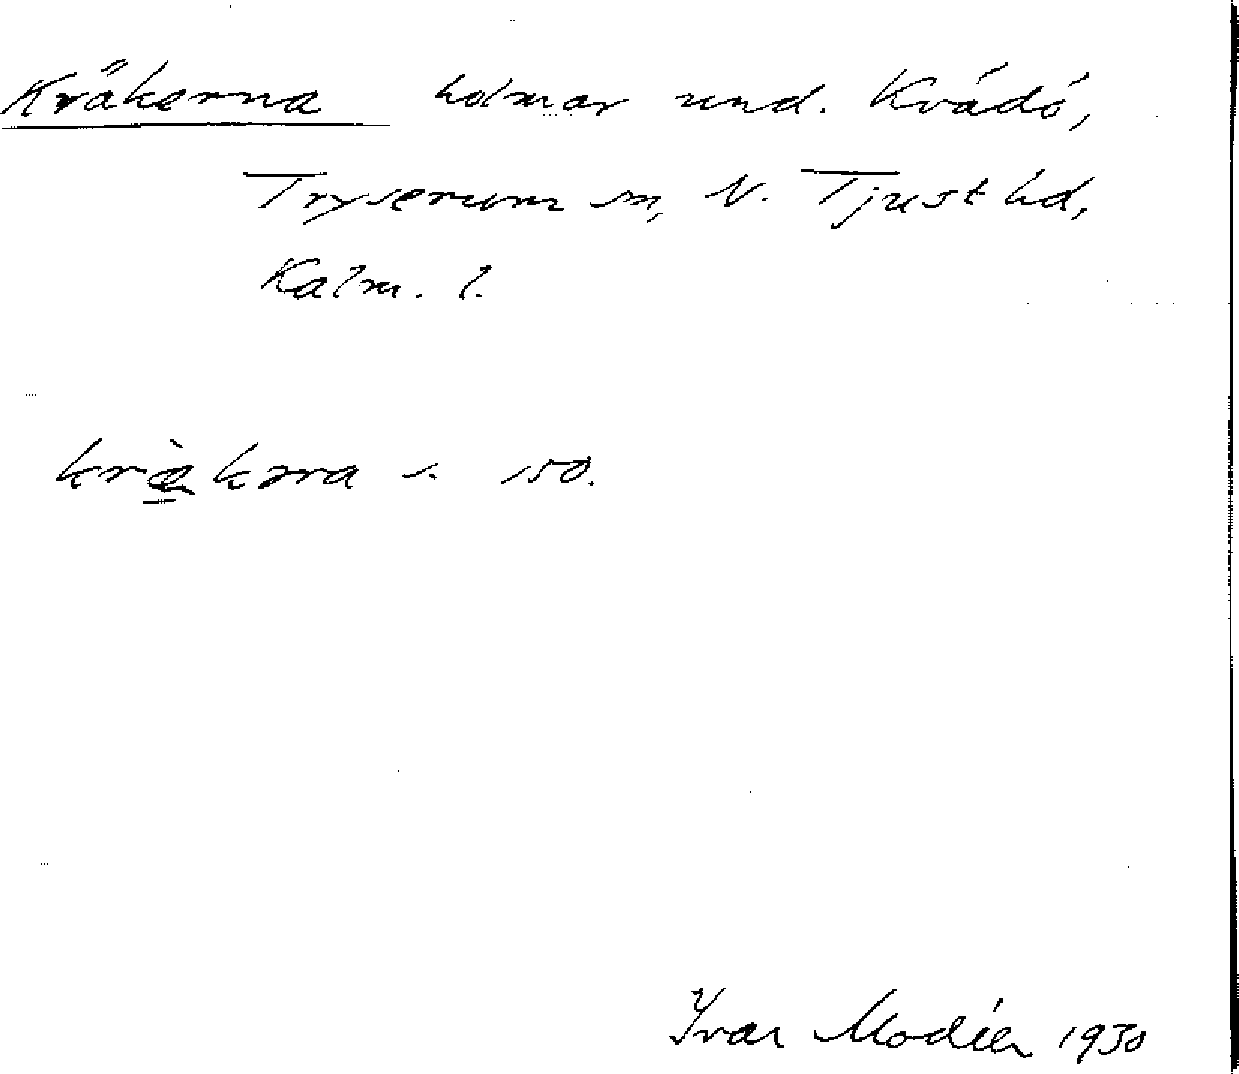 Kråkerna holmar und. Kvädö,
Tryserum sn, N. Tjust hd,
Kalm. l.
150.
Ivar Modéer 1930